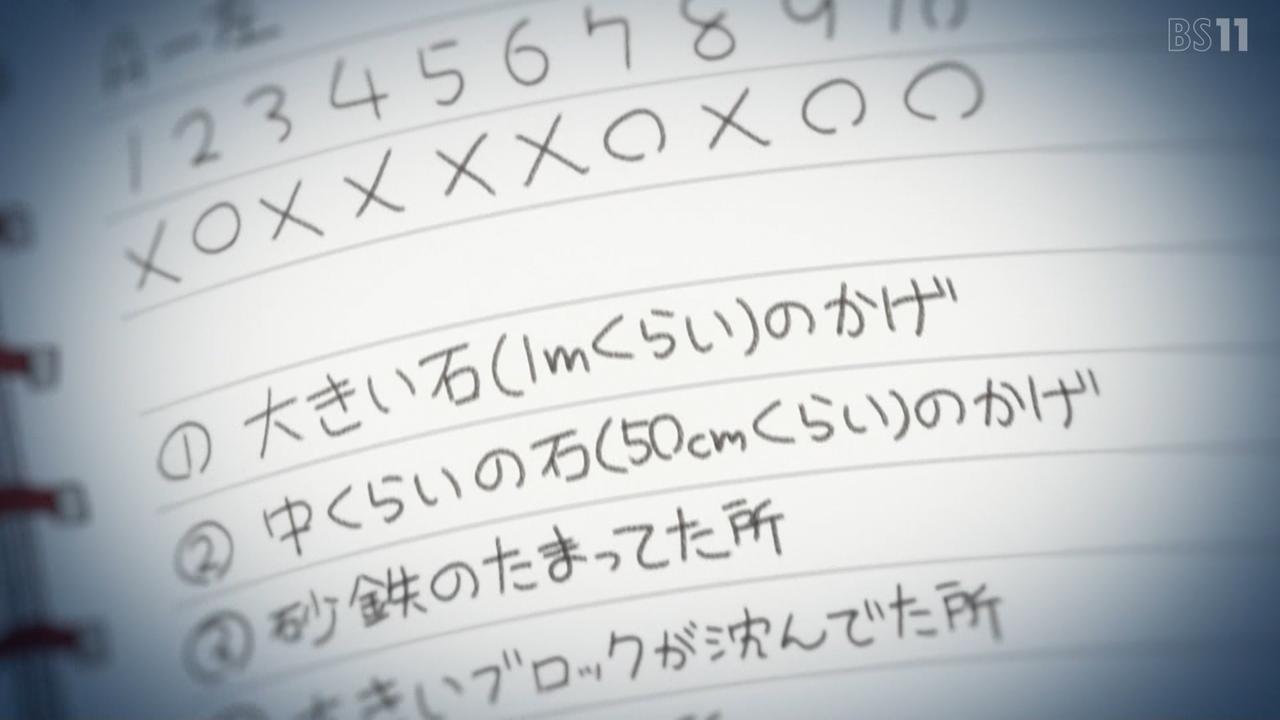 BS11
A-左
1 2 3 4 5 6 7 8 9 10
× ○ × × × × ○ × ○ ○
① 大きい石(1mくらい)のかげ
② 中くらいの石(50cmくらい)のかげ
③ 砂鉄のたまってた所
大きいブロックが沈んでた所